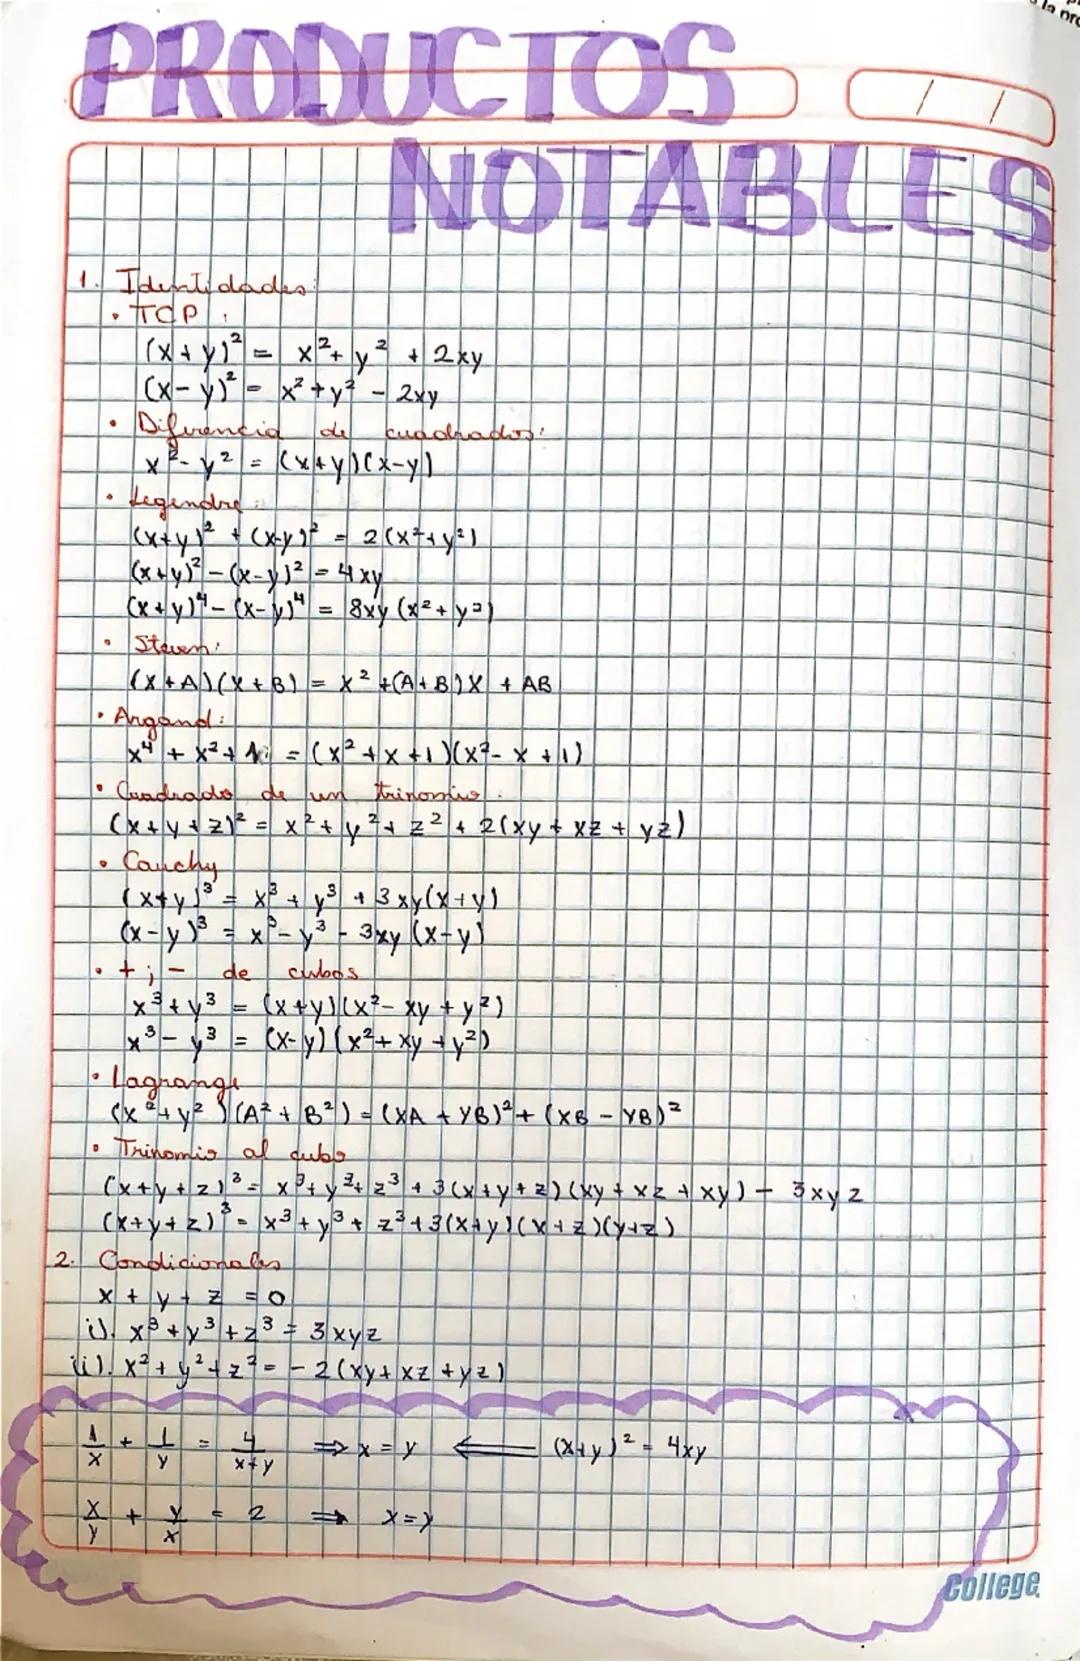 la pro
PRODUCTOS
/ /
NOTABLES
1. Identidades:
• TCP:
(x+y)² = x² + y² + 2xy
(x-y)² = x² + y² - 2xy
• Diferencia de cuadrados:
x² - y² = (x+y)(x-y)
• Legendre:
(x+y)² + (x-y)² = 2(x²+y²)
(x+y)² - (x-y)² = 4xy
(x+y)⁴ - (x-y)⁴ = 8xy(x²+y²)
• Steven:
(X+A)(X+B) = X² + (A+B)X + AB
• Argand:
x⁴ + x² + 1 = (x²+x+1)(x²-x+1)
• Cuadrado de un trinomio:
(x+y+z)² = x² + y² + z² + 2(xy + xz + yz)
• Cauchy
(x+y)³ = x³ + y³ + 3xy(x+y)
(x-y)³ = x³ - y³ - 3xy(x-y)
• + ; - de cubos
x³ + y³ = (x+y)(x² - xy + y²)
x³ - y³ = (x-y)(x² + xy + y²)
• Lagrange
(x² + y²)(A² + B²) = (XA + YB)² + (XB - YB)²
• Trinomio al cubo
(x+y+z)³ = x³ + y³ + z³ + 3(x+y+z)(xy + xz + xy) - 3xyz
(x+y+z)³ = x³ + y³ + z³ + 3(x+y)(x+z)(y+z)
2. Condicionales
x + y + z = 0
i). x³ + y³ + z³ = 3xyz
ii). x² + y² + z² = -2(xy + xz + yz)
1/x + 1/y = 4/x+y ⇒ x = y ⇐ (x+y)² = 4xy
x/y + y/x = 2 ⇒ x = y
College